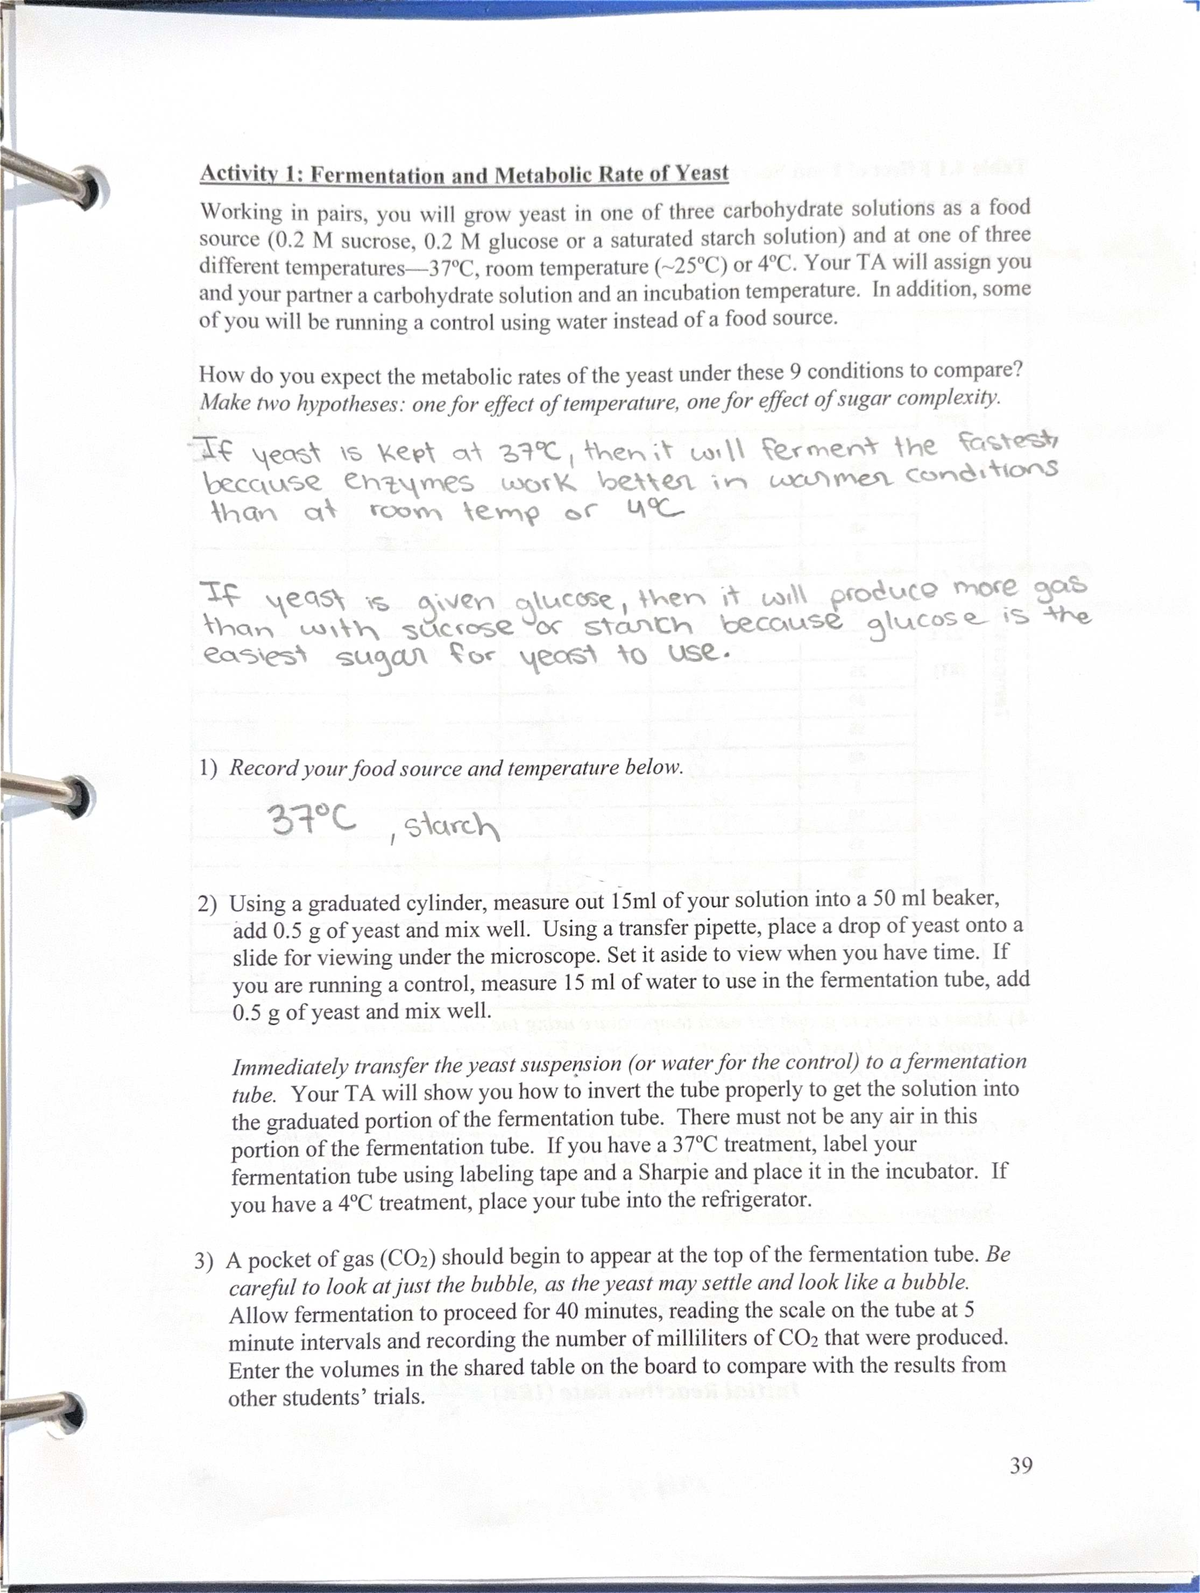 Activity 1: Fermentation and Metabolic Rate of Yeast
Working in pairs, you will grow yeast in one of three carbohydrate solutions as a food
source (0.2 M sucrose, 0.2 M glucose or a saturated starch solution) and at one of three
different temperatures—37ºC, room temperature (~25ºC) or 4ºC. Your TA will assign you
and your partner a carbohydrate solution and an incubation temperature. In addition, some
of you will be running a control using water instead of a food source.
How do you expect the metabolic rates of the yeast under these 9 conditions to compare?
Make two hypotheses: one for effect of temperature, one for effect of sugar complexity.
If yeast is kept at 37°C, then it will ferment the fastest,
because enzymes work better in warmer conditions
than at room temp or 4°C
If yeast is given glucose, then it will produce more gas
than with sucrose or starch because glucose is the
easiest sugar for yeast to use.
1) Record your food source and temperature below.
37°C , starch
2) Using a graduated cylinder, measure out 15ml of your solution into a 50 ml beaker,
add 0.5 g of yeast and mix well. Using a transfer pipette, place a drop of yeast onto a
slide for viewing under the microscope. Set it aside to view when you have time. If
you are running a control, measure 15 ml of water to use in the fermentation tube, add
0.5 g of yeast and mix well.
Immediately transfer the yeast suspension (or water for the control) to a fermentation
tube. Your TA will show you how to invert the tube properly to get the solution into
the graduated portion of the fermentation tube. There must not be any air in this
portion of the fermentation tube. If you have a 37ºC treatment, label your
fermentation tube using labeling tape and a Sharpie and place it in the incubator. If
you have a 4ºC treatment, place your tube into the refrigerator.
3) A pocket of gas (CO2) should begin to appear at the top of the fermentation tube. Be
careful to look at just the bubble, as the yeast may settle and look like a bubble.
Allow fermentation to proceed for 40 minutes, reading the scale on the tube at 5
minute intervals and recording the number of milliliters of CO2 that were produced.
Enter the volumes in the shared table on the board to compare with the results from
other students’ trials.
39